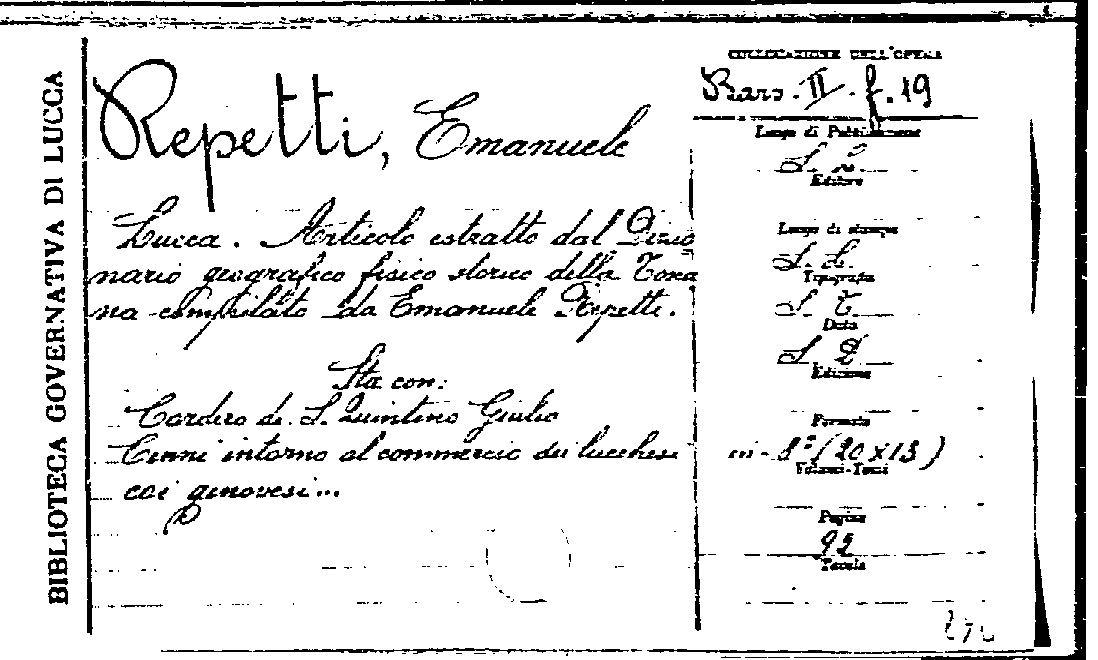 BIBLIOTECA GOVERNATIVA DI LUCCA
Repetti, Emanuele
Lucca. Articolo estratto dal Dizio
nario geografico fisico storico della Tosca
na compilato da Emanuele Repetti.
Sta con:
Cordero di S. Quintino Giulio
Cenni intorno al commercio dei lucchesi
coi genovesi...
COLLOCAZIONE DELL'OPERA
Bars. II. f. 19
Luogo di Pubblicazione
S. L.
Editore
Luogo di stampa
S. L.
Tipografia
S. T.
Data
S. D.
Edizione
Formato
in-8° (20x13)
Volumi-Tomi
Pagine
92
Tavole